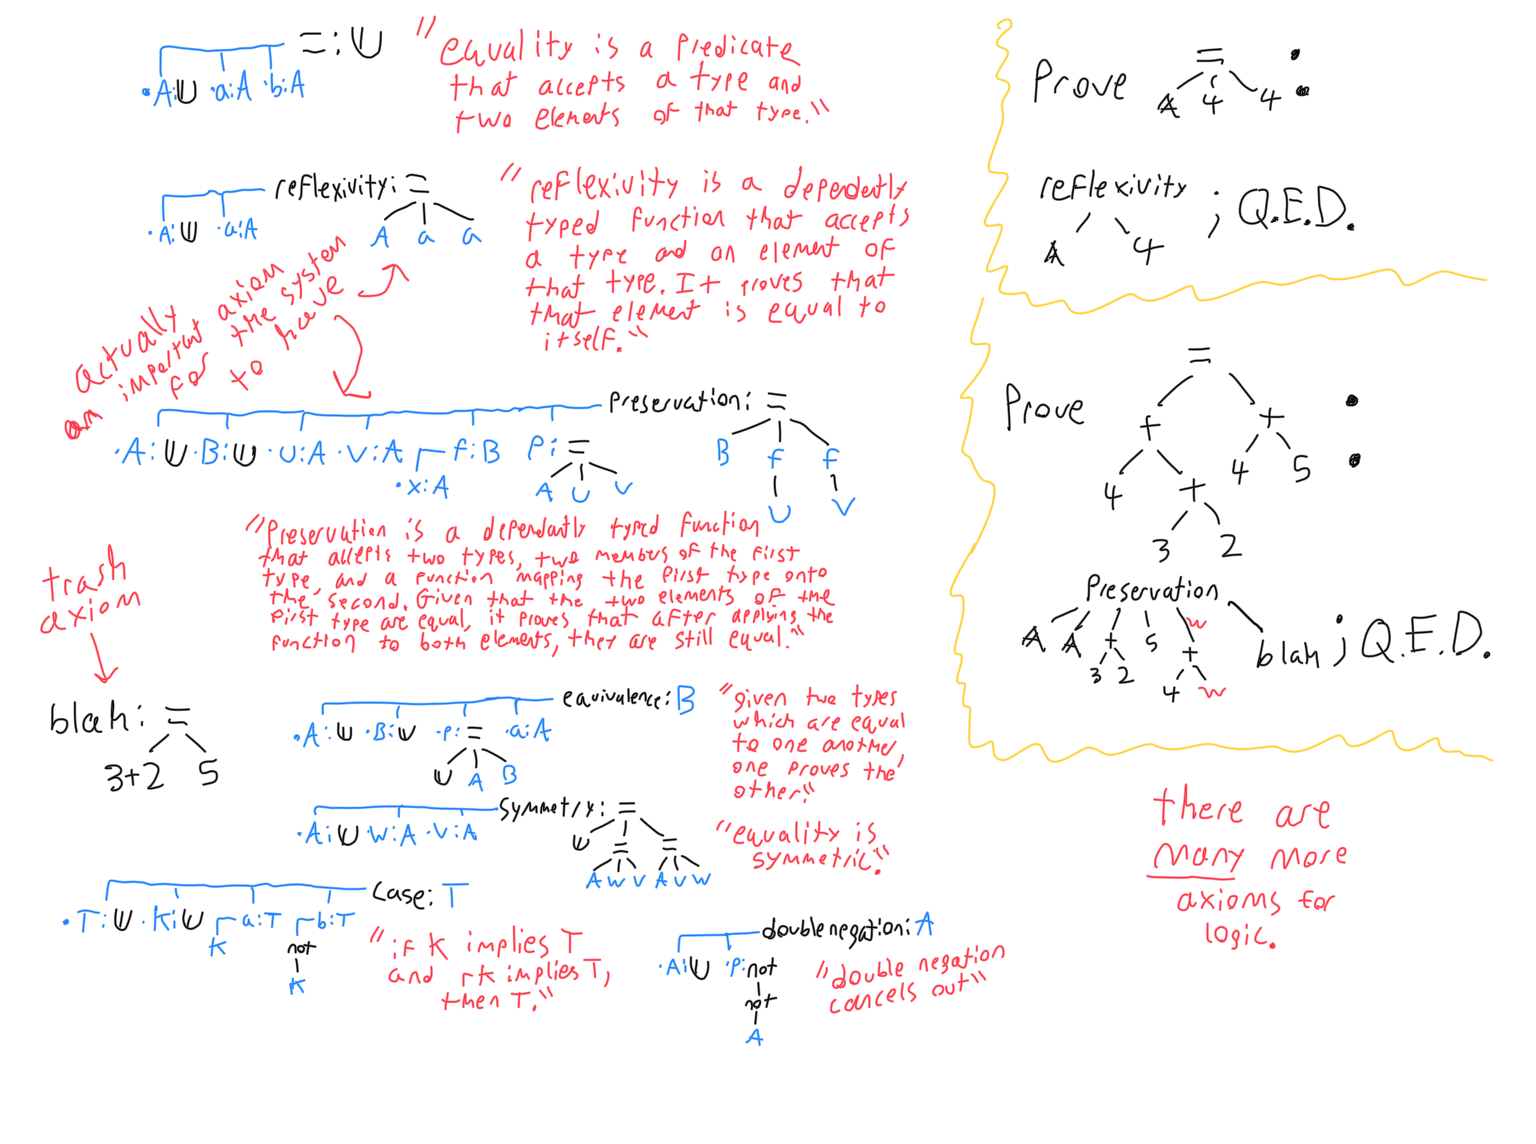 =:𝕌
•A:𝕌 •a:A •b:A
"equality is a predicate
that accepts a type and
two elements of that type."
reflexivity: =
A a a
•A:𝕌 •a:A
"reflexivity is a dependently
typed function that accepts
a type and an element of
that type. It proves that
that element is equal to
itself."
actually
an important axiom
for the system
to have
Preservation: =
•A:𝕌 •B:𝕌 •U:A •V:A f:B P: =
•x:A
A U V
B f f
U V
"Preservation is a dependantly typed function
that accepts two types, two members of the first
type, and a function mapping the first type onto
the second. Given that the two elements of the
first type are equal, it proves that after applying the
function to both elements, they are still equal."
trash
axiom
blah: =
3+2 5
equivalence: B
•A:𝕌 •B:𝕌 •P: = •a:A
𝕌 A B
"given two types
which are equal
to one another,
one proves the
other."
symmetry: =
•A:𝕌 W:A •V:A
𝕌 = =
A W V A V W
"equality is
symmetric."
Case: T
•T:𝕌 •K:𝕌 a:T b:T
K not
K
"if K implies T
and rk implies T,
then T."
double negation: A
•A:𝕌 •P: not
not
A
"double negation
cancels out"
Prove = :
A 4 4
reflexivity ; Q.E.D.
A 4
Prove = :
+ +
4 + 4 5
3 2
Preservation
A A + 5 w blah ; Q.E.D.
3 2 +
4 w
there are
many more
axioms for
logic.